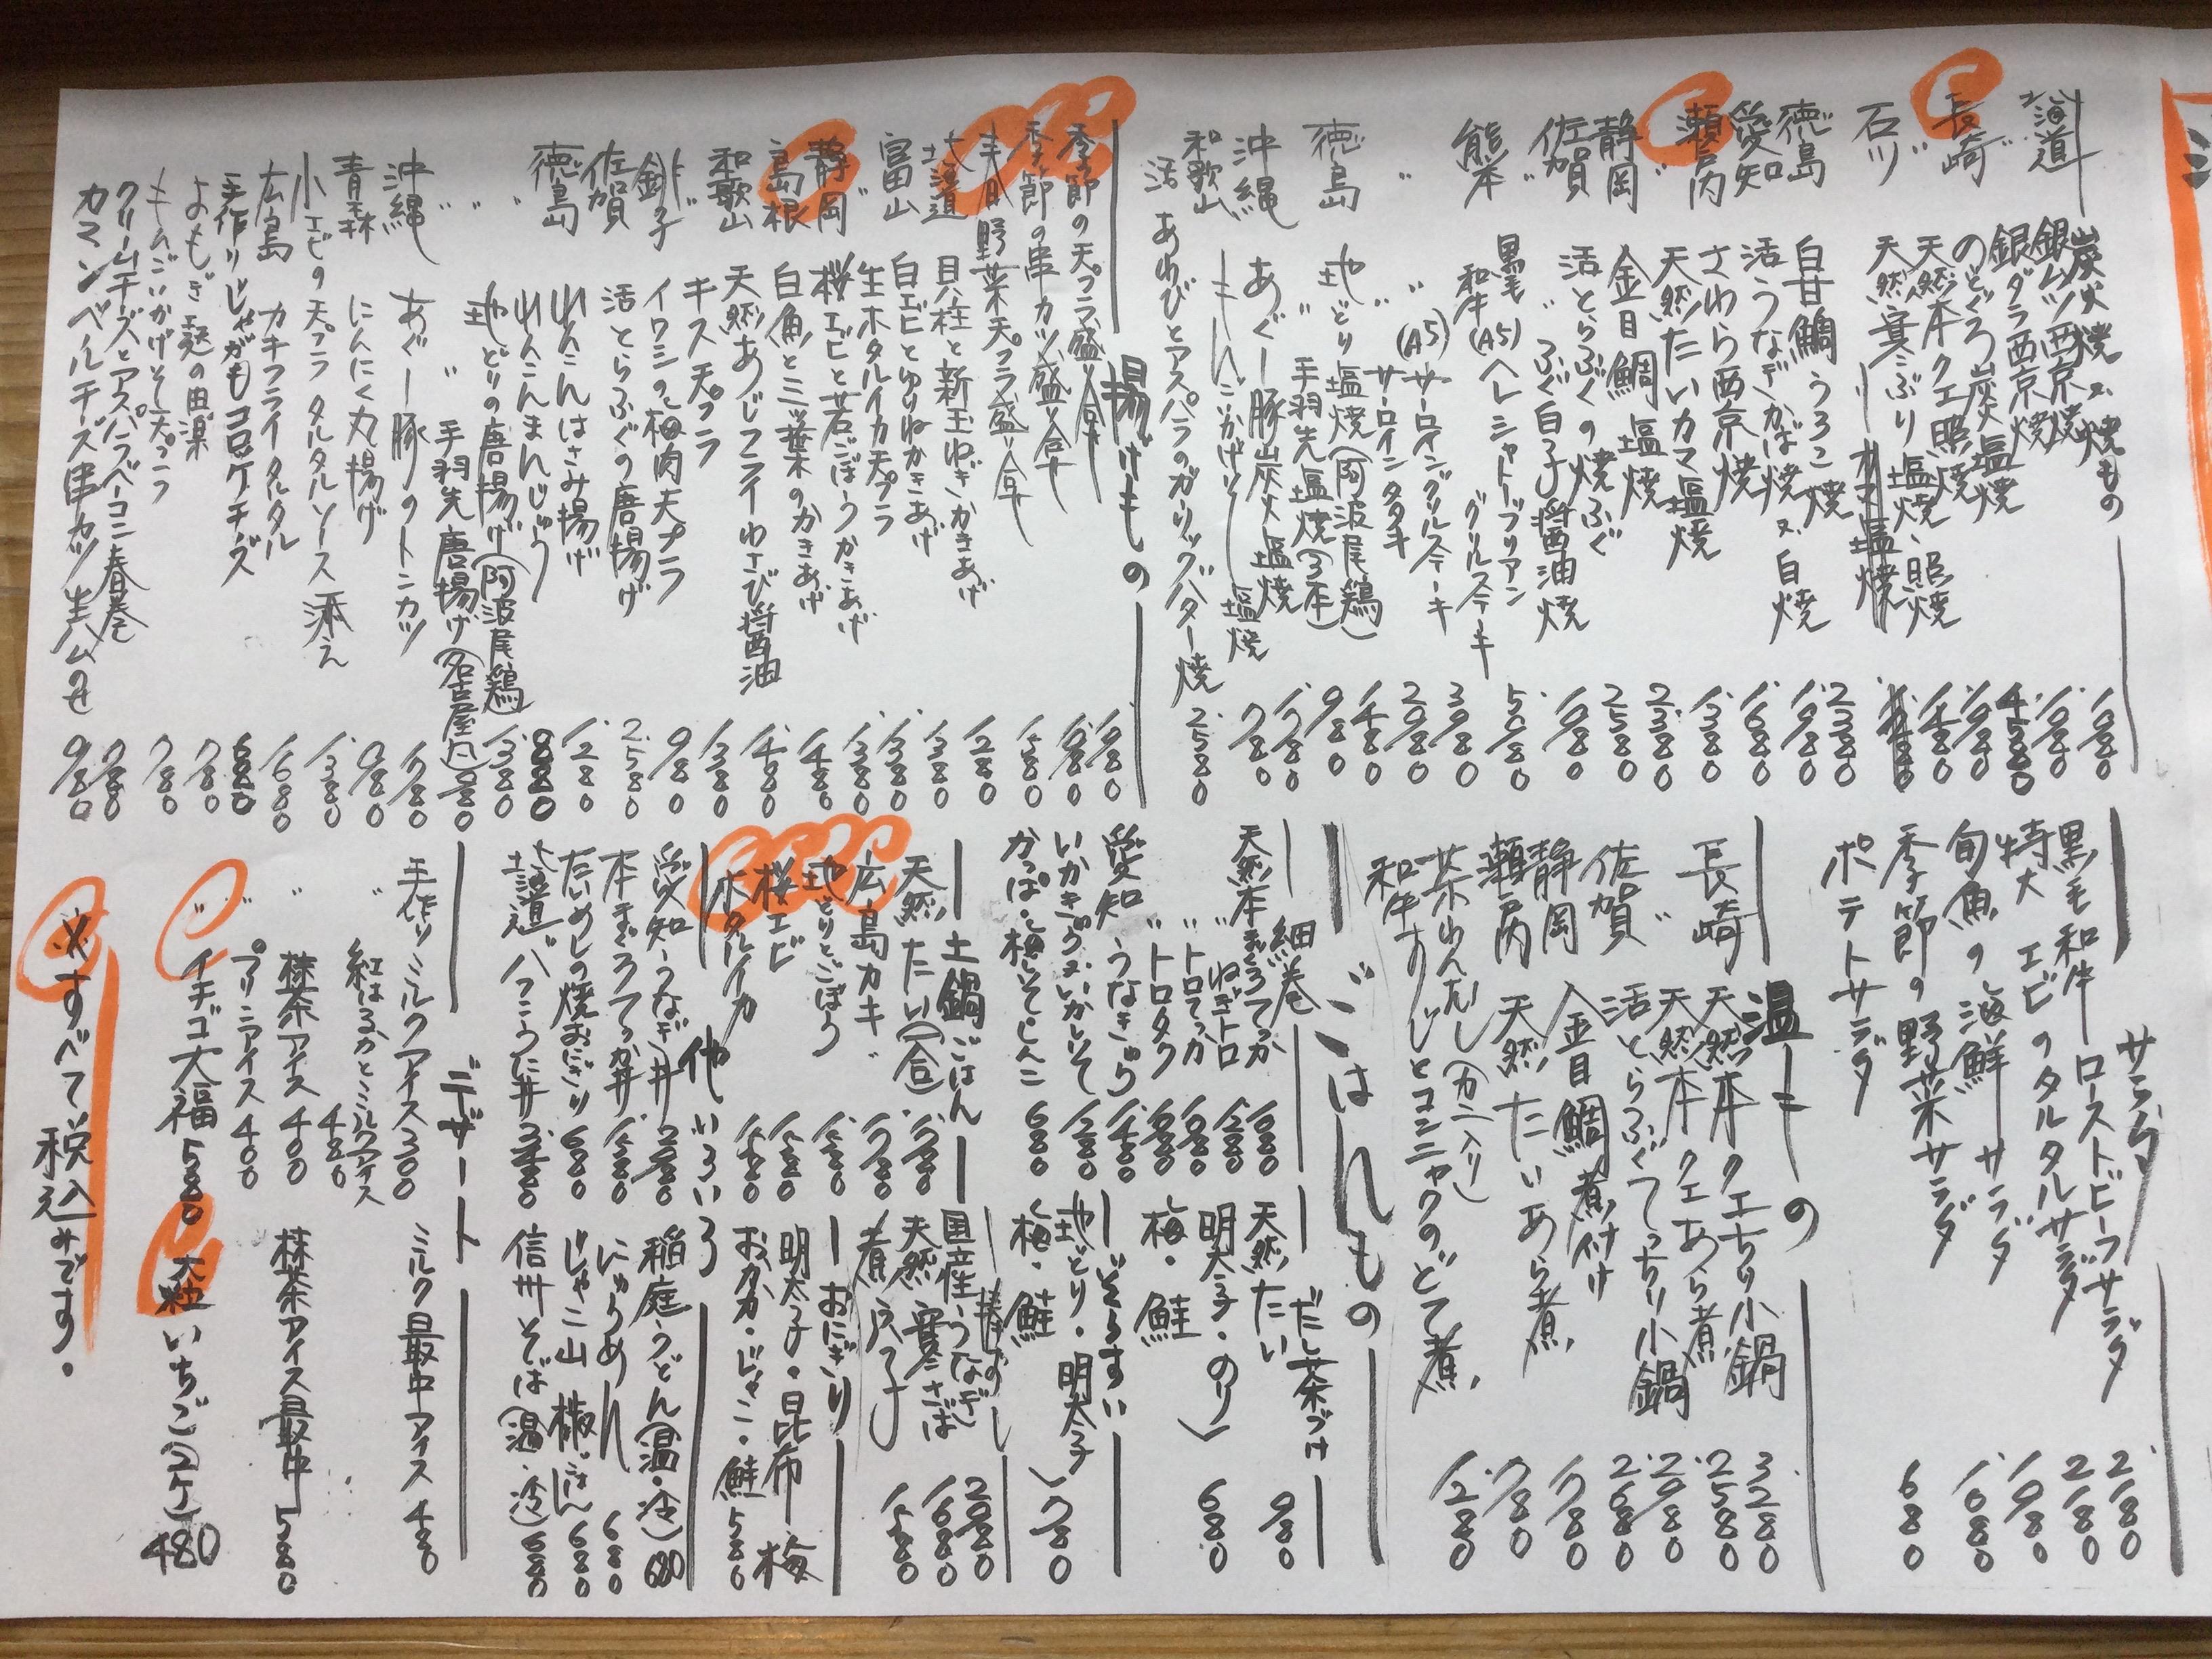 炭火焼又は焼もの
北海道 銀ムツ西京焼 1.980
〃 銀ダラ西京焼 1.980
長崎 のどぐろ炭火塩焼 4.580
〃 天然本クエ照焼 1.980
石川 天然寒ぶり塩焼、照焼 1.480
〃 〃 カマ塩焼
徳島 白甘鯛うろこ焼 2.380
愛知 活うなぎかば焼又は白焼
瀬戸内 さわら西京焼 1.680
〃 天然たいカマ塩焼 1.380
静岡 金目鯛塩焼 2.380
佐賀 活とらふぐの焼ふぐ 2.580
〃 ふぐ白子醤油焼 1.980
熊本 黒毛和牛(A5)ヘレシャトーブリアングリルステーキ
〃 〃(A5)サーロイングリルステーキ
〃 〃 サーロインタタキ
徳島 地どり塩焼(阿波尾鶏) 1.480
〃 〃 手羽先塩焼(3本) 980
沖縄 あぐー豚炭火塩焼 1.780
もんごいかげそ塩焼 780
和歌山 活あわびとアスパラのガーリックバター焼 2.580
揚げもの
季節の天プラ盛り合せ 1.980
季節の串カツ盛り合せ 1.980
春野菜天プラ盛り合せ 1.580
北海道 貝柱と新玉ねぎかきあげ 1.280
〃 白エビとゆりねかきあげ 1.380
富山 生ホタルイカ天プラ 1.380
静岡 桜エビと若ごぼうかきあげ 1.380
島根 白魚と三ツ葉のかきあげ 1.480
和歌山 天然あじフライわさび醤油 1.480
〃 キス天プラ 1.380
銚子 イワシの梅肉天プラ 980
佐賀 活とらふぐの唐揚げ 2.580
徳島 れんこんはさみ揚げ 1.280
〃 れんこんまんじゅう 880
〃 地どりの唐揚げ(阿波尾鶏) 1.380
〃 〃 手羽先唐揚げ(名古屋風)
沖縄 あぐー豚のトンカツ 1.780
青森 にんにく丸揚げ 980
小エビの天プラ タルタルソース添え 1.380
広島 カキフライタルタル 1.680
手作りじゃがもちコロッケチーズ 680
よもぎ麩の田楽 780
もんごいかげそ天プラ 780
クリームチーズとアスパラベーコン春巻 780
カマンベールチーズ串カツ生ハムのせ 980
サラダ
黒毛和牛ローストビーフサラダ 2.180
特大エビのタルタルサラダ 2.180
旬魚の海鮮サラダ 1.980
季節の野菜サラダ 1.080
ポテトサラダ 680
温もの
長崎 天然本クエちり小鍋 3.280
〃 天然本クエあら煮 2.580
佐賀 活とらふぐてっちり小鍋
静岡 金目鯛煮付け 2.680
瀬戸内 天然たいあら煮 1.780
茶わんむし(カニ入り) 780
和牛すじとコンニャクのどて煮 1.280
ごはんもの
細巻
天然本まぐろてっか 1.680
〃 ねぎトロ 1.280
〃 トロてっか 1.680
〃 トロタク
愛知 うなきゅう 1.480
いかきゅう又はいかしそ 1.280
かっぱ・梅しそ・しんこ 680
だし茶づけ
天然たい 980
明太子・のり
梅・鮭 680
ぞうすい
地どり・明太子
梅・鮭 780
棒ずし
国産うなぎ 2.080
天然寒さば 1.680
煮穴子 1.580
土鍋ごはん
天然たい(1合) 1.780
広島カキ〃 1.780
地どりとごぼう 1.580
桜エビ 1.580
ホタルイカ 1.580
おにぎり
明太子・昆布・梅
おかか・じゃこ・鮭 580
他いろいろ
愛知 うなぎ丼
本まぐろてっか丼 1.580
たいめしの焼おにぎり 680
北海道 バフンうに丼
稲庭うどん(温・冷) 680
にゅうめん 680
じゃこ山椒ごはん 680
信州そば(温・冷) 680
デザート
手作りミルクアイス 300
〃 紅はるかとミルクアイス 480
〃 抹茶アイス 400
〃 プリンアイス 400
〃 イチゴ大福 580
ミルク最中アイス 480
抹茶アイス最中 580
大粒いちご(2ケ) 480
※すべて税込みです。